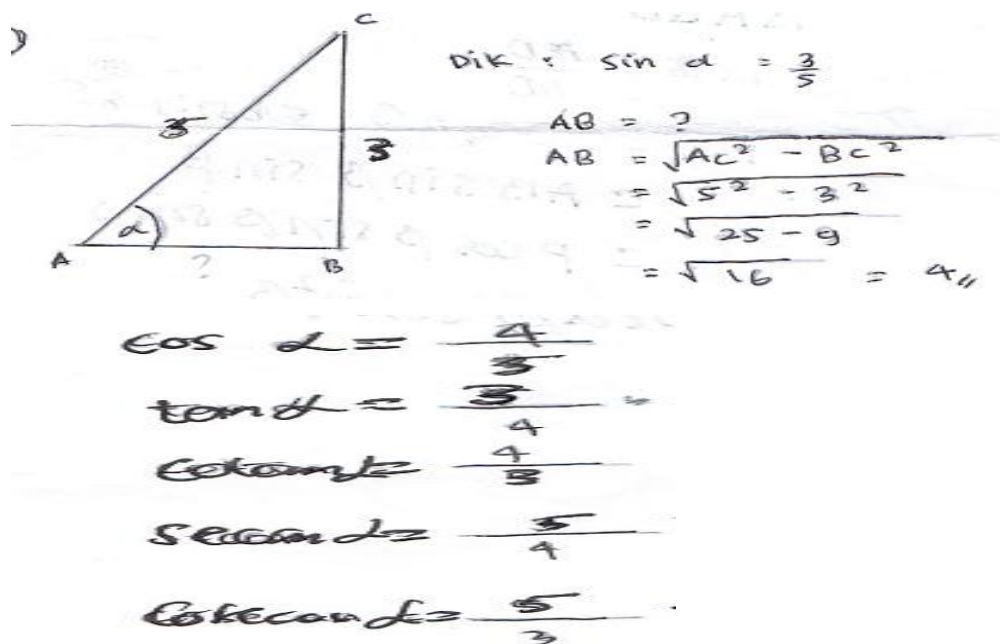 )
C
Dik : sin α = 3/5
AB = ?
5
3
AB = √AC² - BC²
= √5² - 3²
α
= √25 - 9
A
?
B
= √16 = 4,,
cos α = 4/5
tan α = 3/4
cotan α = 4/3
secan α = 5/4
Cosecan α = 5/3